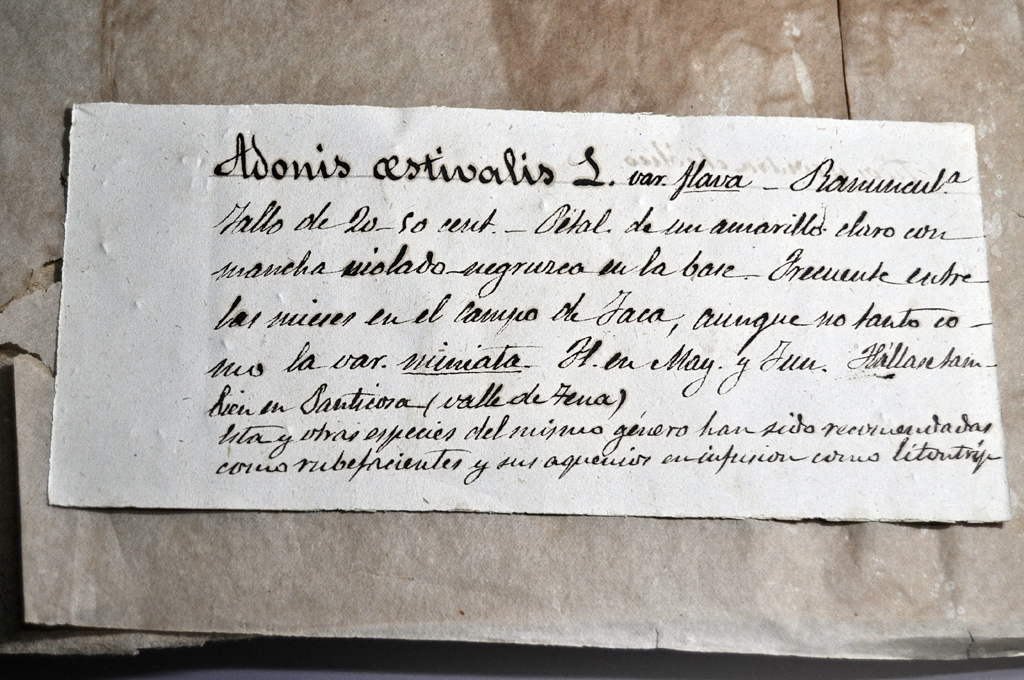 Adonis æstivalis L. var. flava - Ranuncul.ª
Tallo de 20-50 cent. - Pétal. de un amarillo claro con
mancha violado-negruzca en la base - Frecuente entre
las mieses en el campo de Jaca, aunque no tanto co-
mo la var. miniata. Fl. en May. y Jun. Hállase tam-
bien en Panticosa (valle de Tena)
Esta y otras especies del mismo género han sido recomendadas
como rubefacientes y sus aquenios en infusion como litontríp